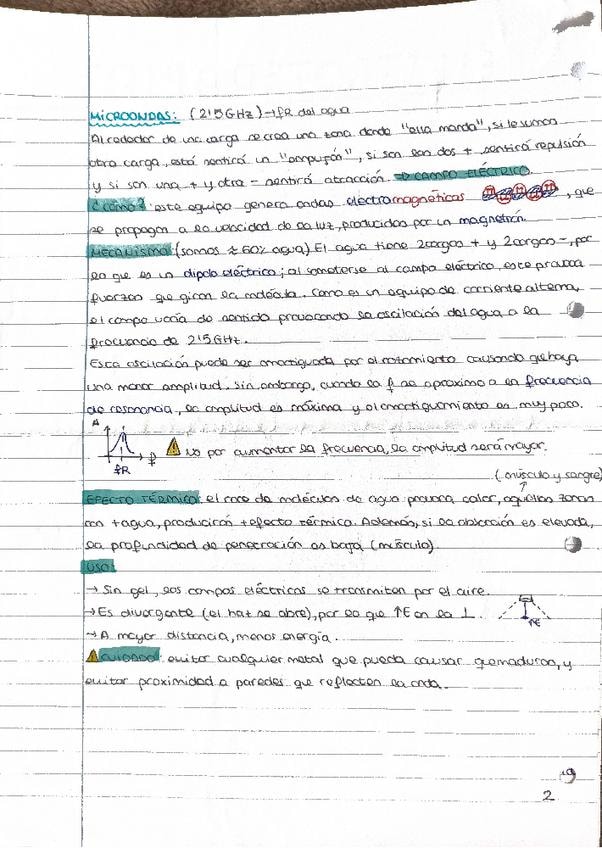 MICROONDAS: (2'5GHz) → fR del agua
Alrededor de una carga se crea una zona donde "ella manda", si le sumas
otra carga, está sentirá un "empujón", si son dos + sentirá repulsión
y si son una + y otra - sentirá atracción. → CAMPO ELÉCTRICO.
¿Cómo?: este equipo genera ondas electromagnéticas , que
se propagan a la velocidad de la luz, producidas por un magnetrón.
MECANISMO (somos ≈ 60% agua) El agua tiene 2 cargas + y 2 cargas -, por
lo que es un dipolo eléctrico; al someterse al campo eléctrico, este provoca
fuerzas que giran la molécula. Como es un equipo de corriente alterna,
el campo varía de sentido provocando la oscilación del agua a la
frecuencia de 2'5GHz.
Esta oscilación puede ser amortiguada por el rozamiento causando que haya
una menor amplitud. Sin embargo, cuando la f se aproxima a la frecuencia
de resonancia, la amplitud es máxima y el amortiguamiento es muy poco.
A
No por aumentar la frecuencia, la amplitud será mayor.
fR f
(músculo y sangre)
EFECTO TÉRMICO: el roce de moléculas de agua provoca calor, aquellas zonas
con + agua, producirán + efecto térmico. Además, si la absorción es elevada,
la profundidad de penetración es baja (músculo).
USO:
→ Sin gel, los campos eléctricos se transmiten por el aire.
→ Es divergente (el haz se abre), por lo que ↑E en la ⊥.
↑E
→ A mayor distancia, menos energía.
CUIDADO: evitar cualquier metal que pueda causar quemaduras, y
evitar proximidad a paredes que reflecten la onda.
2